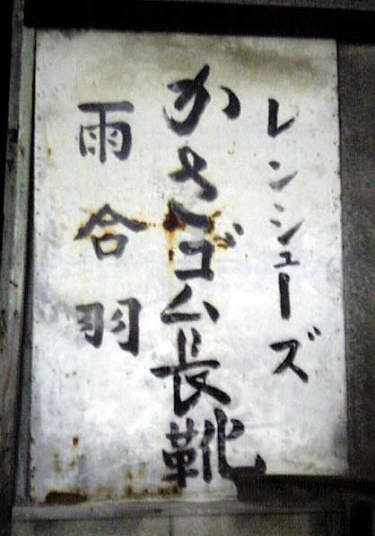 レンシューズ
かさゴム長靴
雨合羽